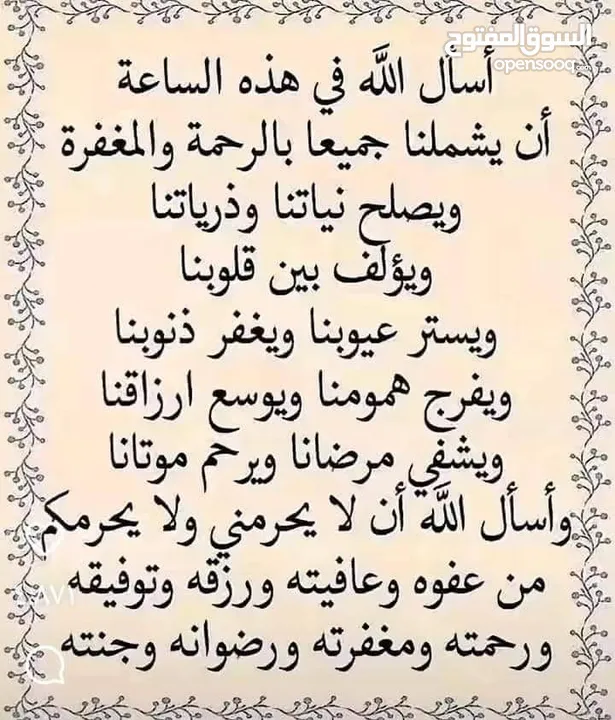 السوق المفتوح
opensooq
أسأل اللَّه في هذه الساعة
أن يشملنا جميعا بالرحمة والمغفرة
ويصلح نياتنا وذرياتنا
ويؤلف بين قلوبنا
ويستر عيوبنا ويغفر ذنوبنا
ويفرج همومنا ويوسع ارزاقنا
ويشفي مرضانا ويرحم موتانا
وأسأل اللَّه أن لا يحرمني ولا يحرمكم
من عفوه وعافيته ورزقه وتوفيقه
ورحمته ومغفرته ورضوانه وجنته